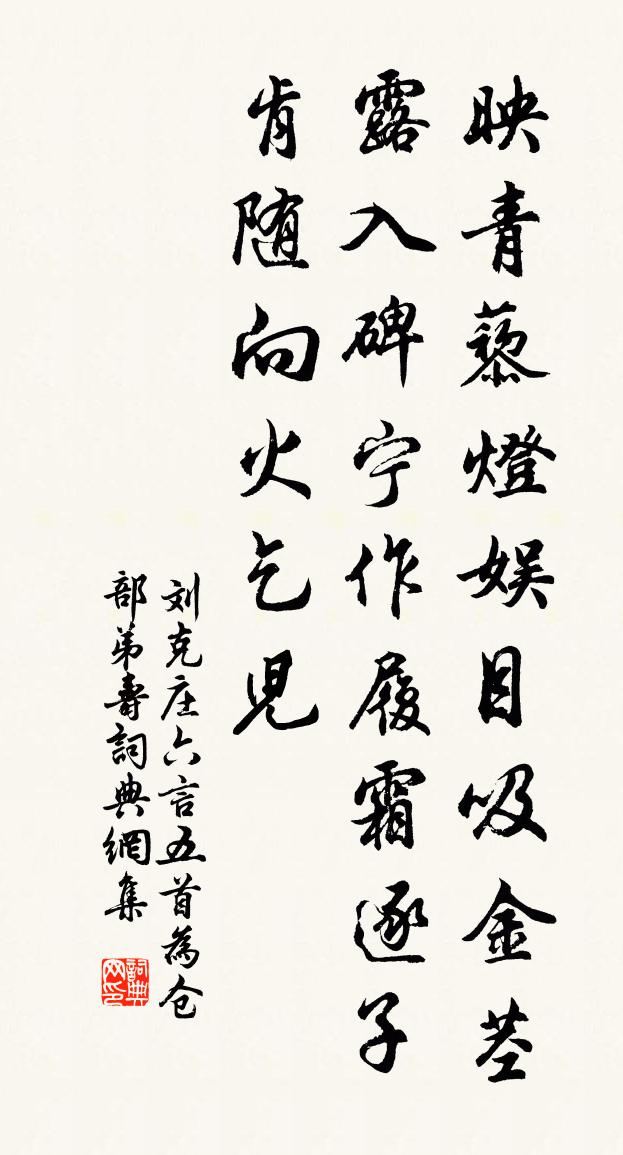 映青藜燈娱目吸金茎
露入碑宁作履霜逐子
肯随向火乞児
刘克庄六言五首為仓
部弟壽詞典網集
詞典网印